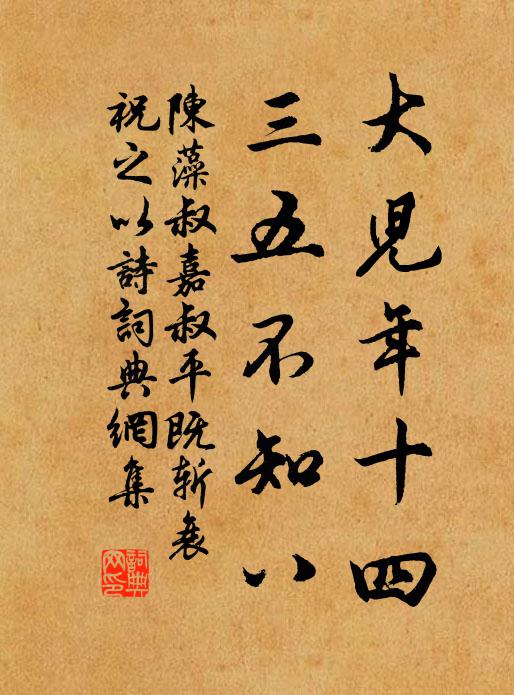 大兒年十四
三五不知八
陳藻叔嘉叔平既斬衰
祝之以詩詞典網集
詞典
网印